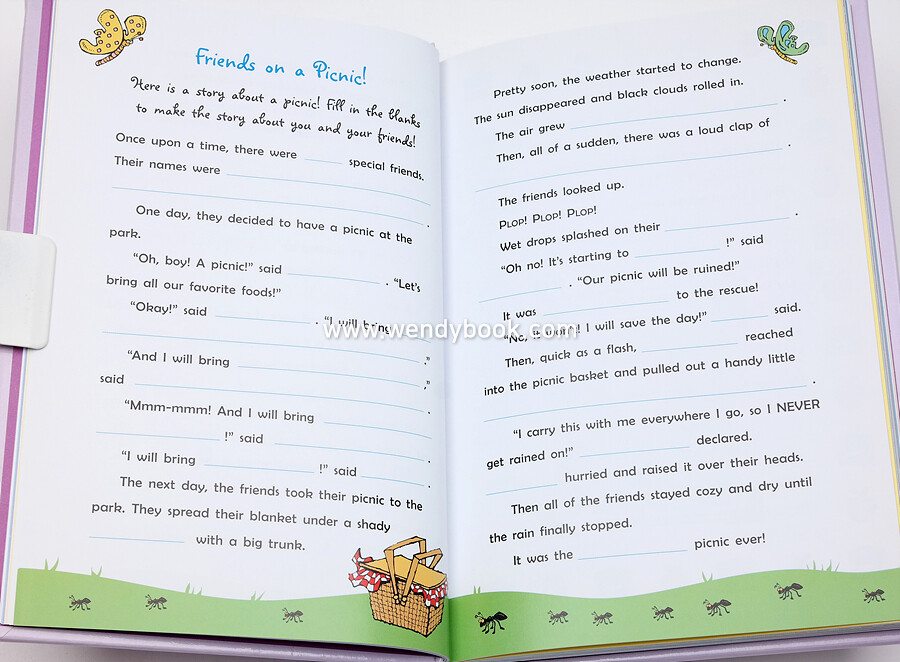 Friends on a Picnic!
Here is a story about a picnic! Fill in the blanks
to make the story about you and your friends!
Once upon a time, there were ______ special friends.
Their names were ______
______.
One day, they decided to have a picnic at the
park.
"Oh, boy! A picnic!" said ______. "Let's
bring all our favorite foods!"
"Okay!" said ______. "I will bring
______."
"And I will bring ______,"
said ______.
"Mmm-mmm! And I will bring ______
______!" said ______.
"I will bring ______!" said ______.
The next day, the friends took their picnic to the
park. They spread their blanket under a shady
______ with a big trunk.
Pretty soon, the weather started to change.
The sun disappeared and black clouds rolled in.
The air grew ______.
Then, all of a sudden, there was a loud clap of
______.
The friends looked up.
PLOP! PLOP! PLOP!
Wet drops splashed on their ______.
"Oh no! It's starting to ______!" said
______. "Our picnic will be ruined!"
It was ______ to the rescue!
"No, it won't! I will save the day!" ______ said.
Then, quick as a flash, ______ reached
into the picnic basket and pulled out a handy little
______.
"I carry this with me everywhere I go, so I NEVER
get rained on!" ______ declared.
______ hurried and raised it over their heads.
Then all of the friends stayed cozy and dry until
the rain finally stopped.
It was the ______ picnic ever!
www.wendybook.com